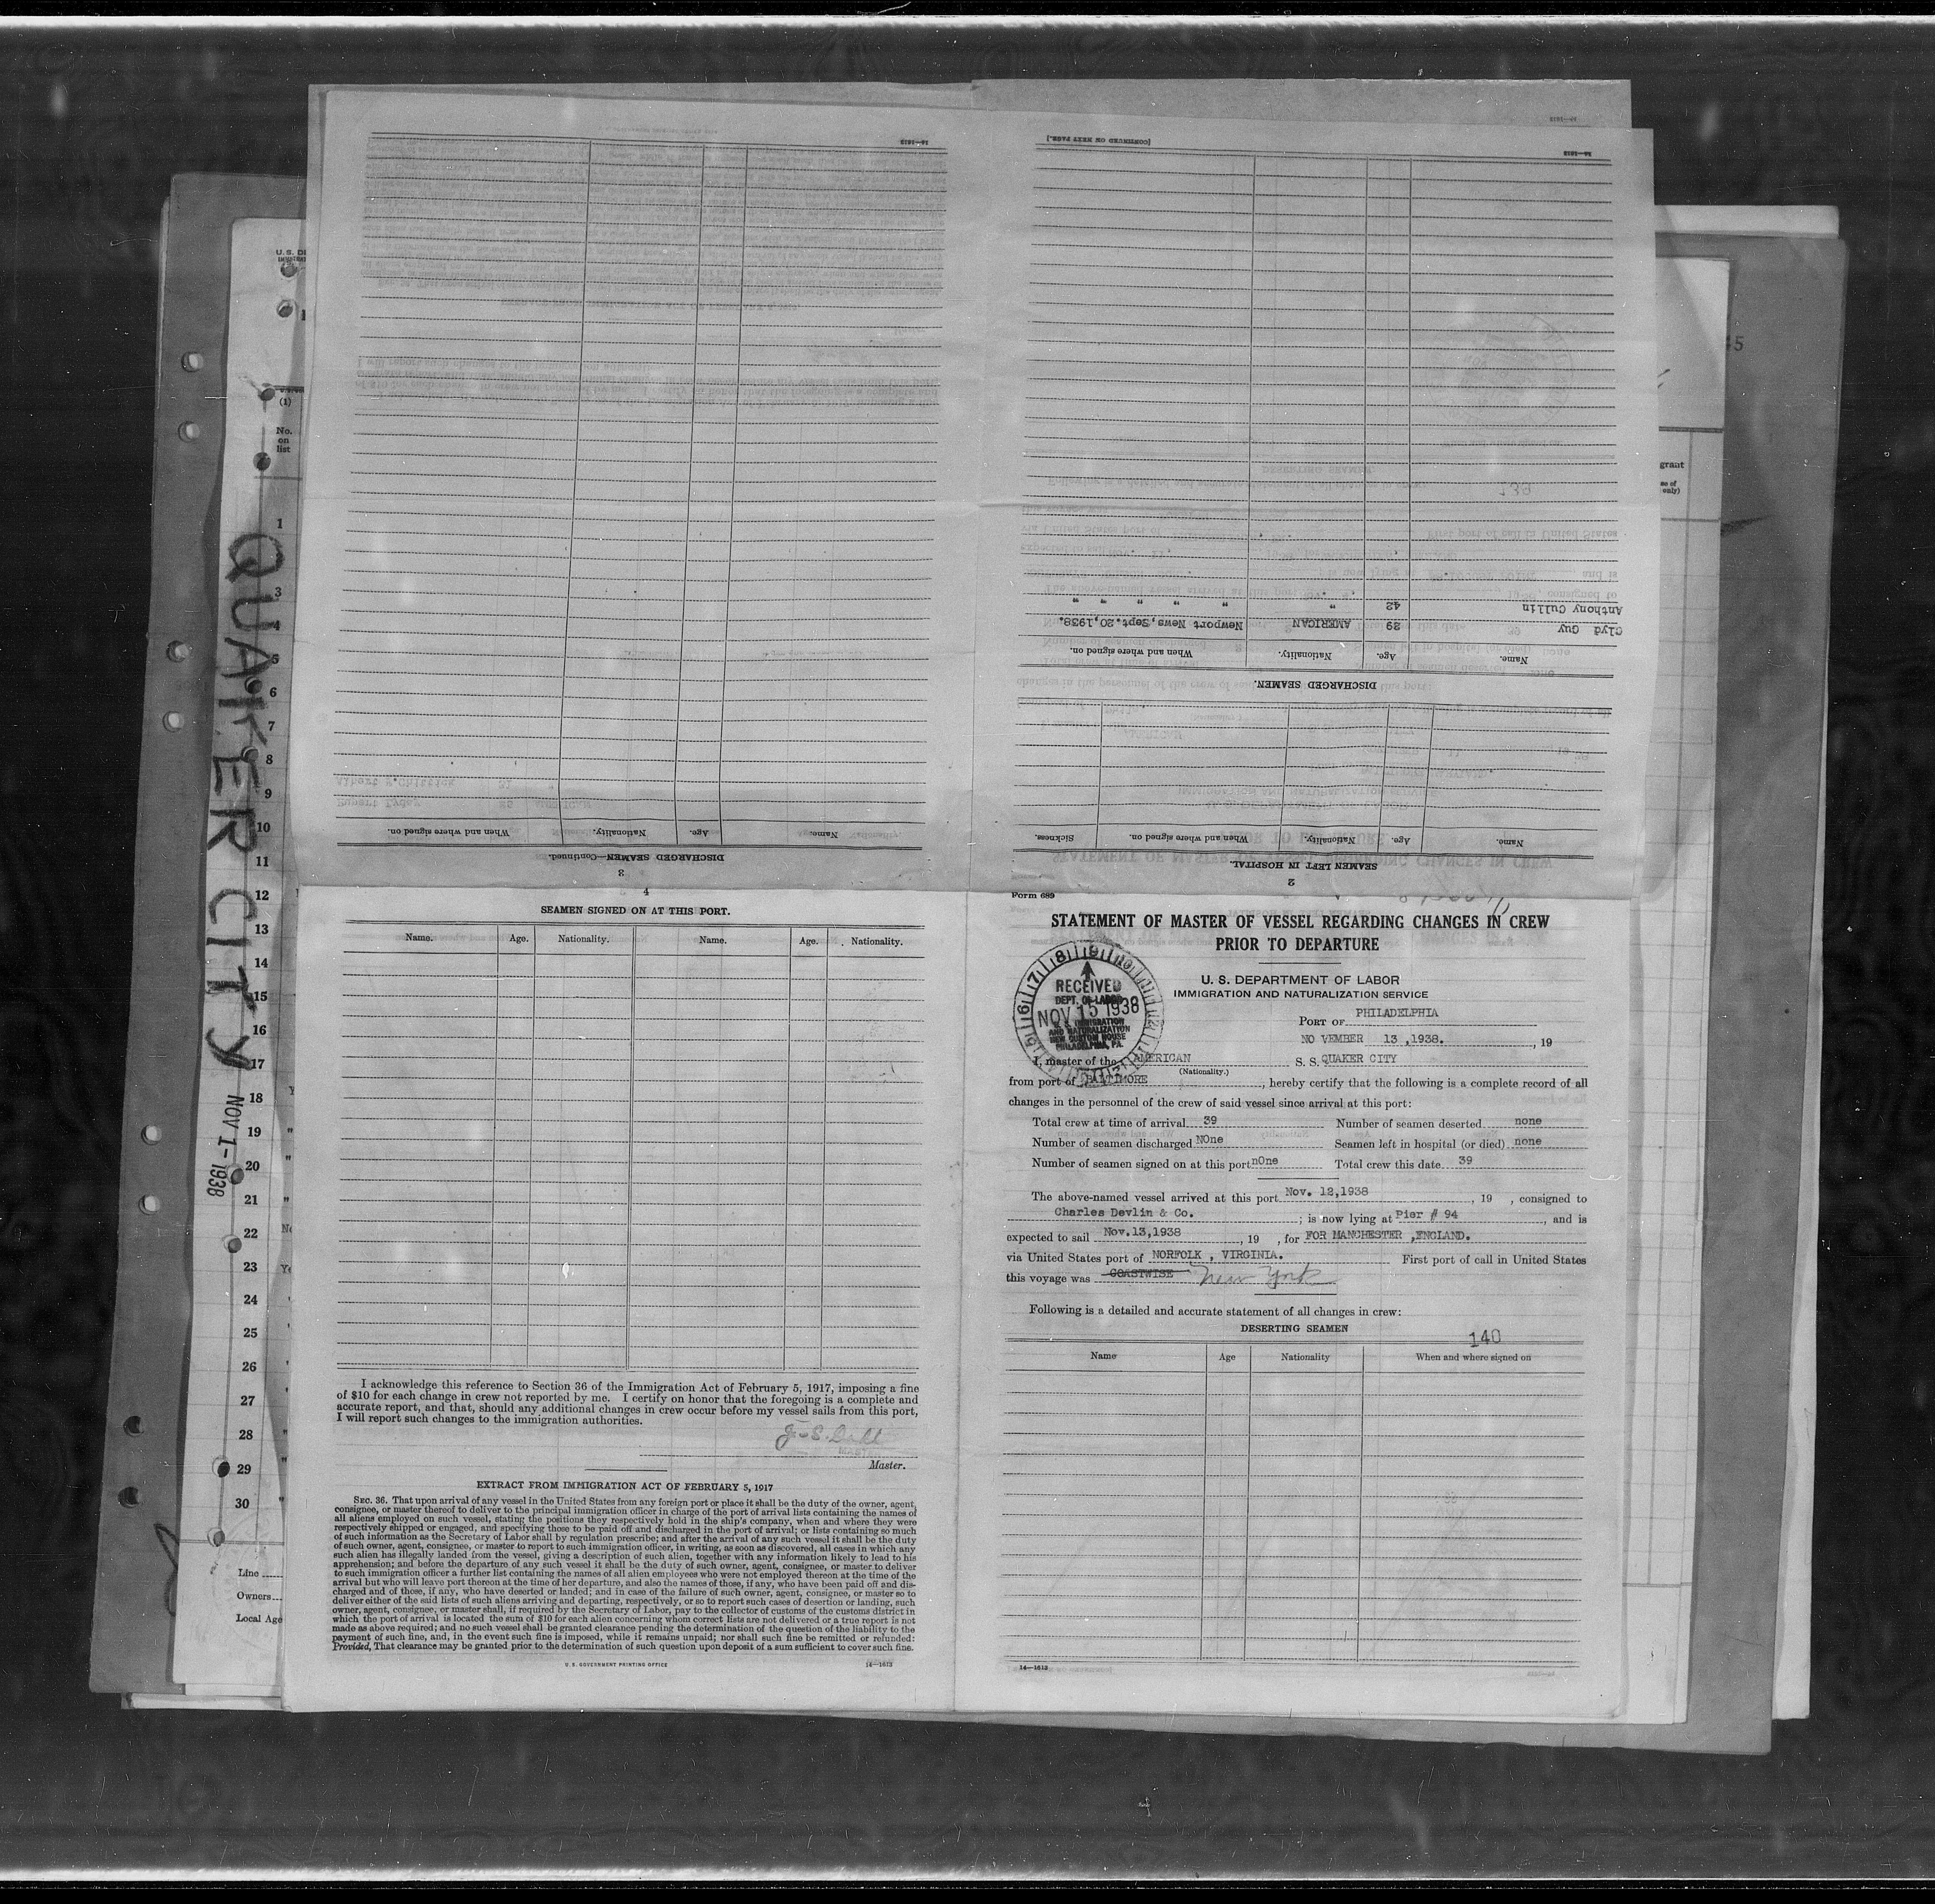 14—1613
14—1613
[CONTINUED ON NEXT PAGE.]
14—1613
Clyd Guy 29 AMERICAN Newport News, Sept. 20, 1938.
Anthony Cullin 42 " " " " " "
Name. Age. Nationality. When and where signed on.
DISCHARGED SEAMEN.
Name. Age. Nationality. When and where signed on. Sickness.
SEAMEN LEFT IN HOSPITAL.
2
Name. Age. Nationality. When and where signed on.
DISCHARGED SEAMEN—Continued.
3
U. S. DE
(1)
No.
on
list
1
3
4
5
6
7
8
9
10
11
12
13
14
15
16
17
18
19
20
21
22
23
24
25
26
27
28
29
30
Line
Owners
Local Age
QUAKER CITY
NOV 1-1938
grant
only)
4
SEAMEN SIGNED ON AT THIS PORT.
Name. Age. Nationality. Name. Age. Nationality.
I acknowledge this reference to Section 36 of the Immigration Act of February 5, 1917, imposing a fine
of $10 for each change in crew not reported by me. I certify on honor that the foregoing is a complete and
accurate report, and that, should any additional changes in crew occur before my vessel sails from this port,
I will report such changes to the immigration authorities.
Master.
EXTRACT FROM IMMIGRATION ACT OF FEBRUARY 5, 1917
SEC. 36. That upon arrival of any vessel in the United States from any foreign port or place it shall be the duty of the owner, agent,
consignee, or master thereof to deliver to the principal immigration officer in charge of the port of arrival lists containing the names of
all aliens employed on such vessel, stating the positions they respectively hold in the ship's company, when and where they were
respectively shipped or engaged, and specifying those to be paid off and discharged in the port of arrival; or lists containing so much
of such information as the Secretary of Labor shall by regulation prescribe; and after the arrival of any such vessel it shall be the duty
of such owner, agent, consignee, or master to report to such immigration officer, in writing, as soon as discovered, all cases in which any
such alien has illegally landed from the vessel, giving a description of such alien, together with any information likely to lead to his
apprehension; and before the departure of any such vessel it shall be the duty of such owner, agent, consignee, or master to deliver
to such immigration officer a further list containing the names of all alien employees who were not employed thereon at the time of the
arrival but who will leave port thereon at the time of her departure, and also the names of those, if any, who have been paid off and dis-
charged and of those, if any, who have deserted or landed; and in case of the failure of such owner, agent, consignee, or master so to
deliver either of the said lists of such aliens arriving and departing, respectively, or so to report such cases of desertion or landing, such
owner, agent, consignee, or master shall, if required by the Secretary of Labor, pay to the collector of customs of the customs district in
which the port of arrival is located the sum of $10 for each alien concerning whom correct lists are not delivered or a true report is not
made as above required; and no such vessel shall be granted clearance pending the determination of the question of the liability to the
payment of such fine, and, in the event such fine is imposed, while it remains unpaid; nor shall such fine be remitted or refunded:
Provided, That clearance may be granted prior to the determination of such question upon deposit of a sum sufficient to cover such fine.
U. S. GOVERNMENT PRINTING OFFICE 14—1613
Form 689
STATEMENT OF MASTER OF VESSEL REGARDING CHANGES IN CREW
PRIOR TO DEPARTURE
U. S. DEPARTMENT OF LABOR
IMMIGRATION AND NATURALIZATION SERVICE
RECEIVED
DEPT. OF LABOR
NOV 15 1938
U. S. IMMIGRATION
AND NATURALIZATION
NEW CUSTOM HOUSE
PHILADELPHIA, PA.
PORT OF PHILADELPHIA
NO VEMBER 13 ,1938. , 19
I, master of the AMERICAN S. S. QUAKER CITY
(Nationality.)
from port of BALTIMORE , hereby certify that the following is a complete record of all
changes in the personnel of the crew of said vessel since arrival at this port:
Total crew at time of arrival 39 Number of seamen deserted none
Number of seamen discharged NOne Seamen left in hospital (or died) none
Number of seamen signed on at this port nOne Total crew this date 39
The above-named vessel arrived at this port Nov. 12,1938 , 19 , consigned to
Charles Devlin & Co. ; is now lying at Pier # 94 , and is
expected to sail Nov.13,1938 , 19 , for FOR MANCHESTER ,ENGLAND.
via United States port of NORFOLK , VIRGINIA. First port of call in United States
this voyage was COASTWISE New York
Following is a detailed and accurate statement of all changes in crew:
DESERTING SEAMEN
140
Name Age Nationality When and where signed on
14—1613